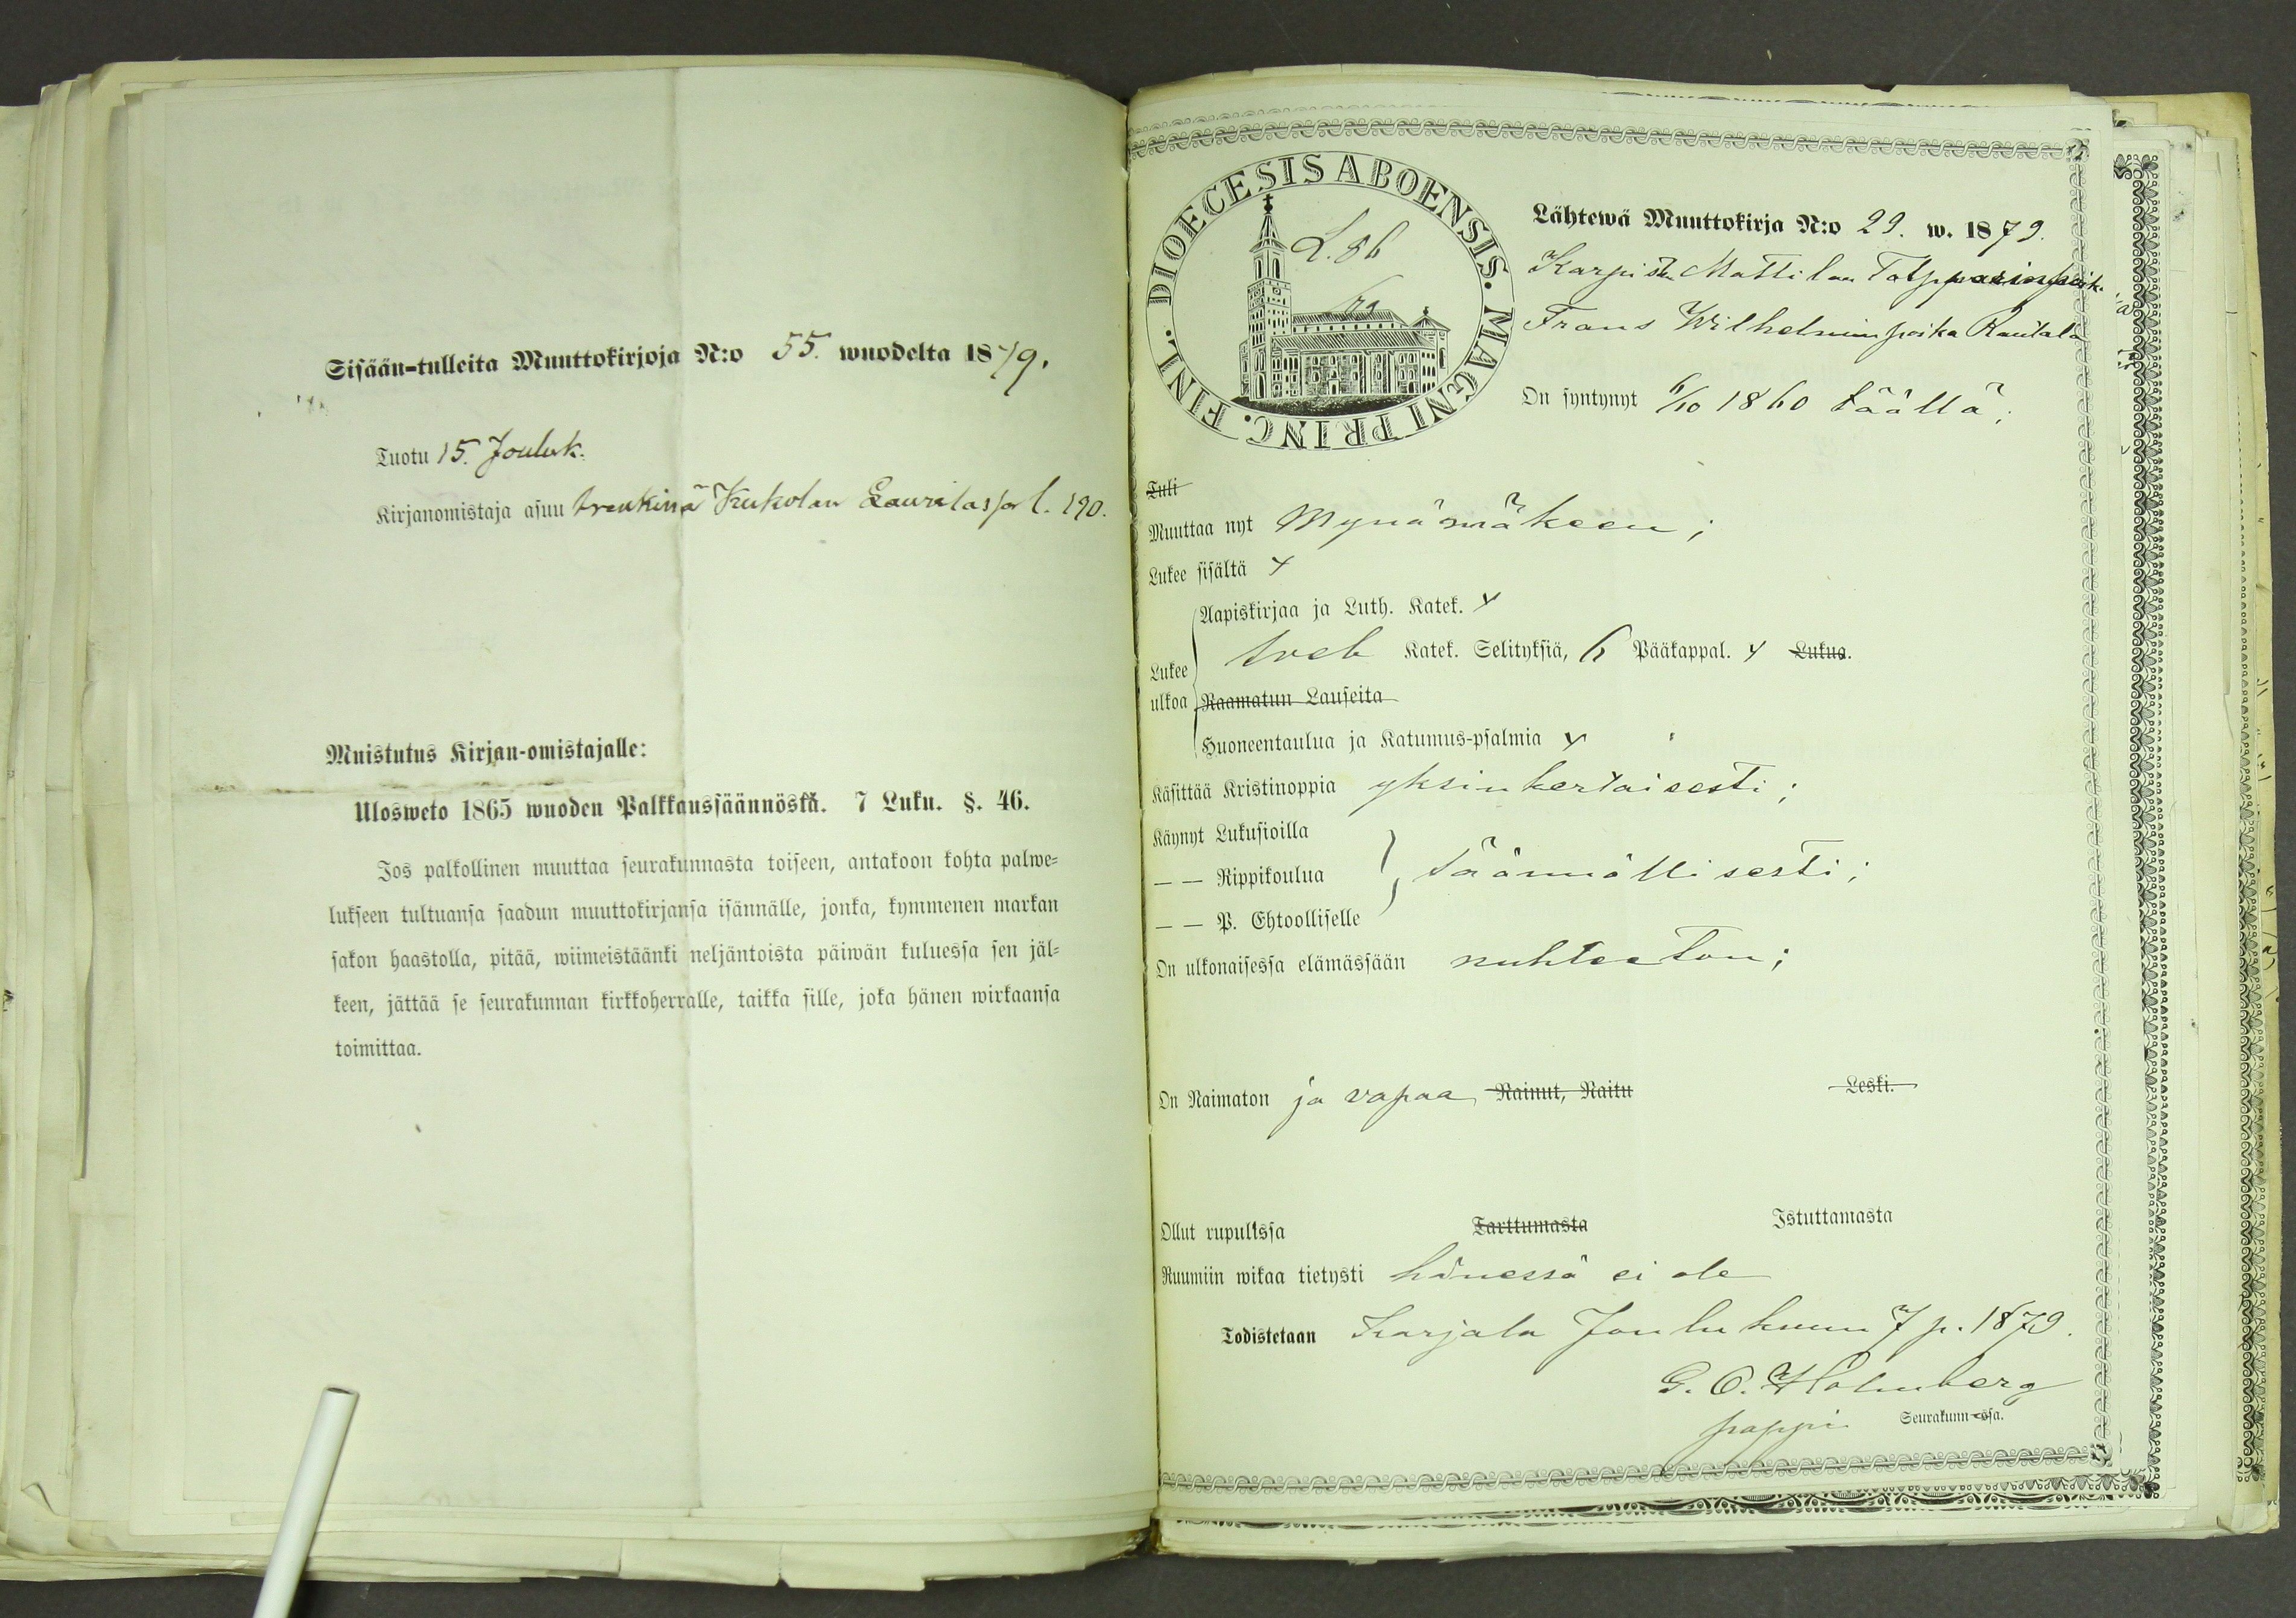 Sisään-tulleita Muuttokirjoja N:o 55. wuodelta 1879.
Tuotu 15. Jouluk.
Kirjanomistaja asuu trenkinä Kukolan Laurilassa l. 190.
Muistutus Kirjan-omistajalle:
Ulosweto 1865 wuoden Palkkaussäännöstä. 7 Luku. §. 46.
Jos palkollinen muuttaa seurakunnasta toiseen, antakoon kohta palwe=
lukseen tultuansa saadun muuttokirjansa isännälle, jonka, kymmenen markan
sakon haastolla, pitää, wiimeistäänki neljäntoista päiwän kuluessa sen jäl=
keen, jättää se seurakunnan kirkkoherralle, taikka sille, joka hänen wirkaansa
toimittaa.
DIOECESIS ABOENSIS. MAGNI PRINC. FINL.
L. 86
Lähtewä Muuttokirja N:o 29. w. 1879.
Karpisten Mattilan Torpparinpoik.
Frans Wilhelminpoika Rautala
On syntynyt 6/10 1860 täällä;
Tuli
Muuttaa nyt Mynämäkeen;
Lukee sisältä x
Aapiskirjaa ja Luth. Katek. x
Lukee ulkoa
Sveb Katek. Selityksiä, 6 Pääkappal. x Lukua.
Raamatun Lauseita
Huoneentaulua ja Katumus-psalmia x
Käsittää Kristinoppia yksinkertaisesti;
Käynyt Lukusioilla
— — Rippikoulua säännöllisesti;
— — P. Ehtoolliselle
On ulkonaisessa elämässään nuhteeton;
On Naimaton ja vapaa Nainut, Naitu Leski.
Ollut rupulissa Tarttumasta Istuttamasta
Ruumiin wikaa tietysti hänessä ei ole
Todistetaan Karjala Joulukuun 7 p. 1879.
G. O. Holmberg
pappi Seurakunn-ssa.